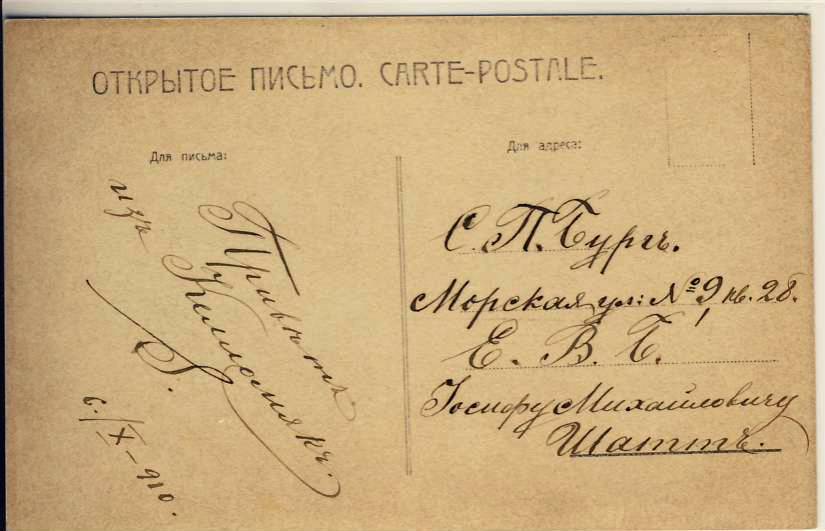 ОТКРЫТОЕ ПИСЬМО. CARTE-POSTALE.
Для письма:
Привѣтъ
изъ Келломякъ.
6./X–910.
Для адреса:
С. П. Бургъ.
Морская ул: № 9, кв. 28.
Е. В. Б.
Іосифу Михайловичу
Шаттъ.